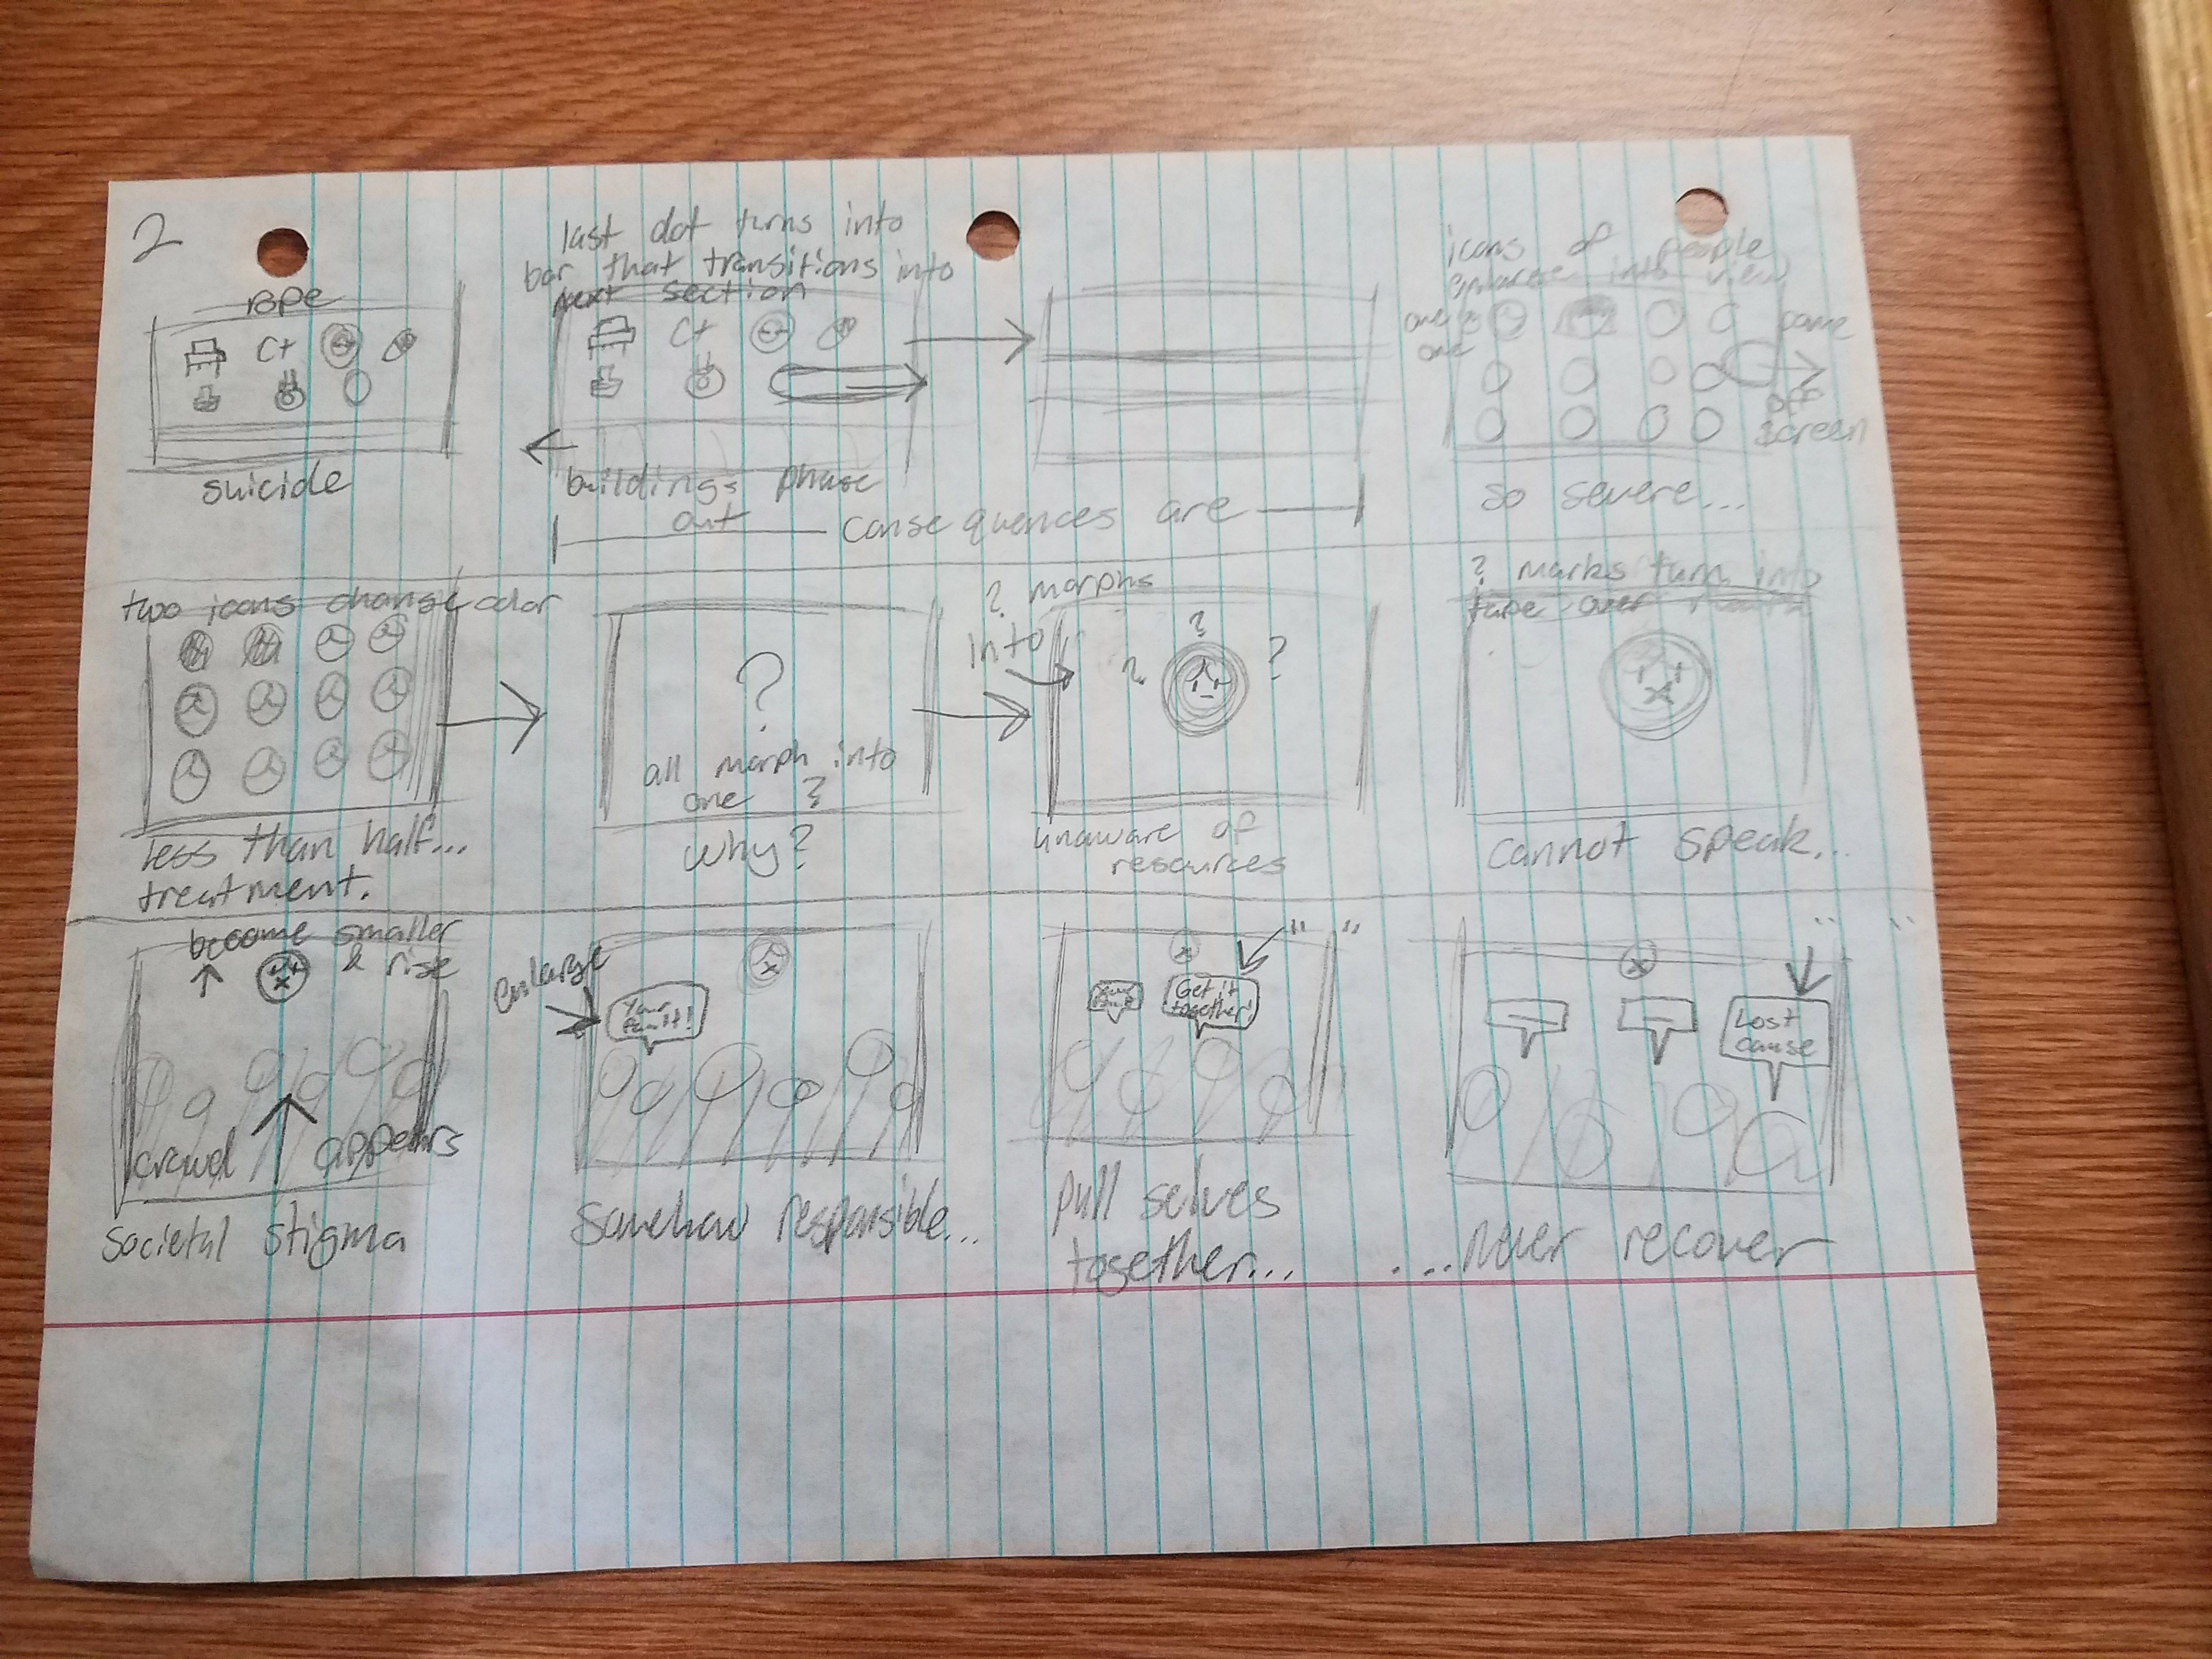 2
rope
suicide
last dot turns into
bar that transitions into
next section
C+
C+
buildings phase
out
consequences are
icons of people
emerge into view
one by
one
come
off
screen
so severe...
two icons change color
less than half...
treatment.
?
all morph into
one ?
why?
? morphs
into
? ? ?
unaware of
resources
? marks turn into
tape over mouth
cannot speak...
become smaller
& rise
crowd appears
societal stigma
enlarge
Your
fault!
Somehow responsible...
" "
Your
fault
Get it
together!
pull selves
together...
" "
Lost
cause
....never recover